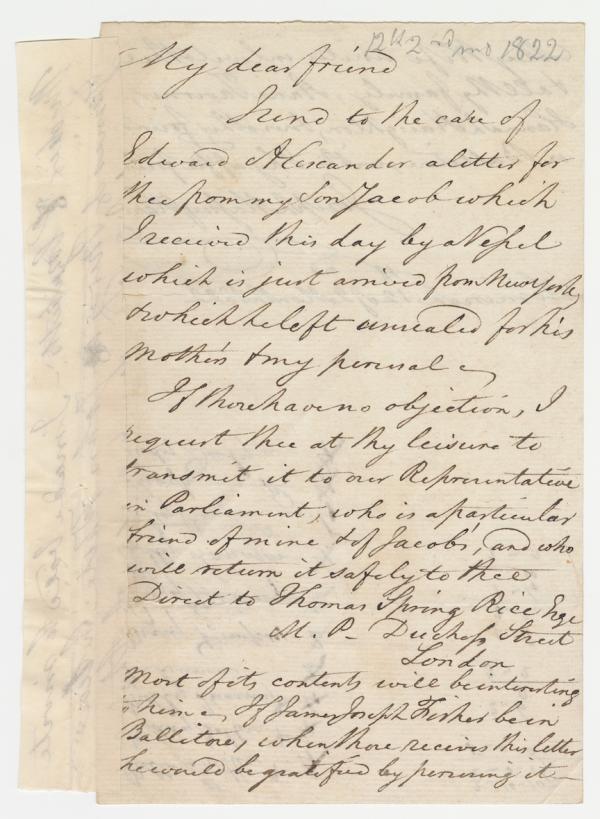 12th 2nd mo 1822
My dear friend
I send to the care of
Edward Alexander a letter for
thee from my Son Jacob which
I received this day by a Veſsel
which is just arrived from New York,
& which he left unsealed for his
Mother's & my perusal
If thou have no objection, I
request thee at thy leisure to
transmit it to our Representative
in Parliament, who is a particular
friend of mine & of Jacob's, and who
will return it safely to thee
Direct to Thomas Spring Rice Esqe
M. P- Ducheſs Street
London
Most of its contents will be interesting
to him. If James Joseph Fisher be in
Ballitore, when thou receives this letter
he would be gratified by perusing it -